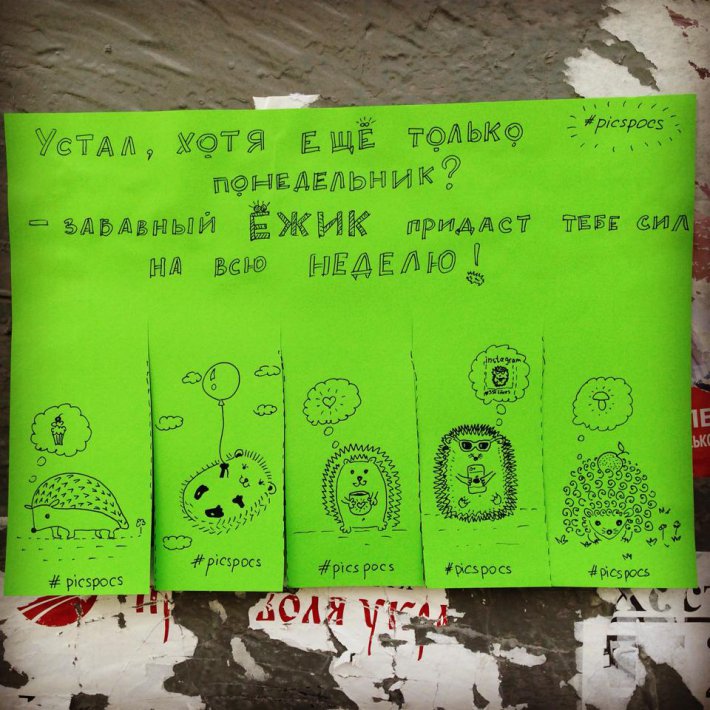 #picspocs
УСТАЛ, ХОТЯ ЕЩЁ ТОЛЬКО
ПОНЕДЕЛЬНИК?
- ЗАБАВНЫЙ ЁЖИК ПРИДАСТ ТЕБЕ СИЛ
НА ВСЮ НЕДЕЛЮ!
instagram
#picspocs
#picspocs
#picspocs
#picspocs
#picspocs